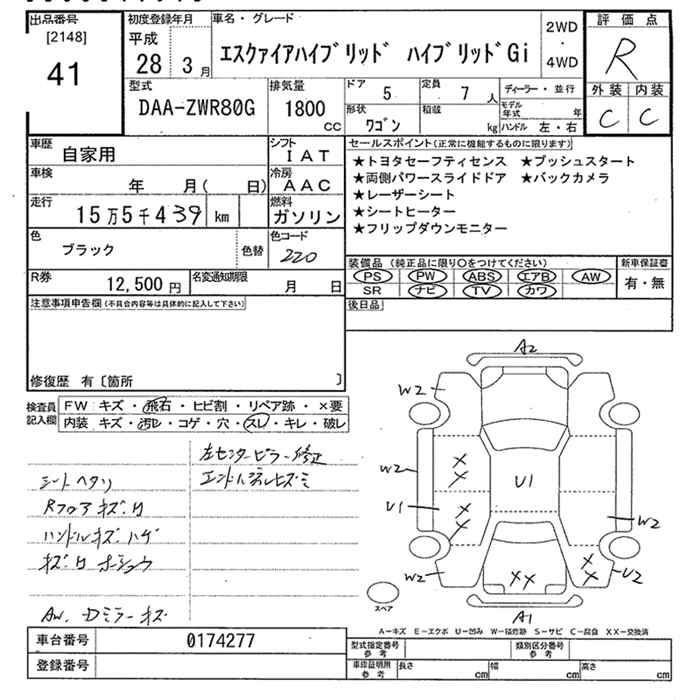 出品番号
[2148]
41
初度登録年月
平成
28 3月
車名・グレード
エスクァイアハイブリッド ハイブリッドGi
2WD
・
4WD
評価点
R
外装 内装
C C
型式
DAA-ZWR80G
排気量
1800
CC
ドア
5
定員
7 人
形状
ワゴン
積載
kg
ディーラー・並行
モデル年式 年
ハンドル 左・右
車歴
自家用
シフト
IAT
車検
年 月( 日)
冷房
AAC
走行
15万5千439 km
燃料
ガソリン
色
ブラック
色替
色コード
220
R券
12,500円
名変通知期限
月 日
セールスポイント(正常に機能するものに限ります)
★トヨタセーフティセンス ★プッシュスタート
★両側パワースライドドア ★バックカメラ
★レーザーシート
★シートヒーター
★フリップダウンモニター
装備品 (純正品に限り○をつけてください)
PS PW ABS エアB AW
SR ナビ TV カワ
新車保証書
有・無
後日品
注意事項申告欄(不具合内容等は具体的に記入して下さい)
修復歴 有〔箇所 〕
検査員記入欄
FW:キズ・飛石・ヒビ割・リペア跡・×要
内装:キズ・汚れ・コゲ・穴・スレ・キレ・破レ
左センターピラー修正
エンドパネルヒズミ
シートヘタリ
Rフロアキズ有
ハンドルキズ・ハゲ
キズ有 ホショウ
AW. Dミラーキズ
A2
W2
W2
U1
W2
XX
XX
U1
W2
XX
XX
U2
A1
スペア
A-キズ E-エクボ U-凹み W-補修跡 S-サビ C-腐食 XX-交換済
車台番号
0174277
登録番号
型式指定番号
参考
類別区分番号
参考
車検証明用
参考
長さ cm
幅 cm
高さ cm